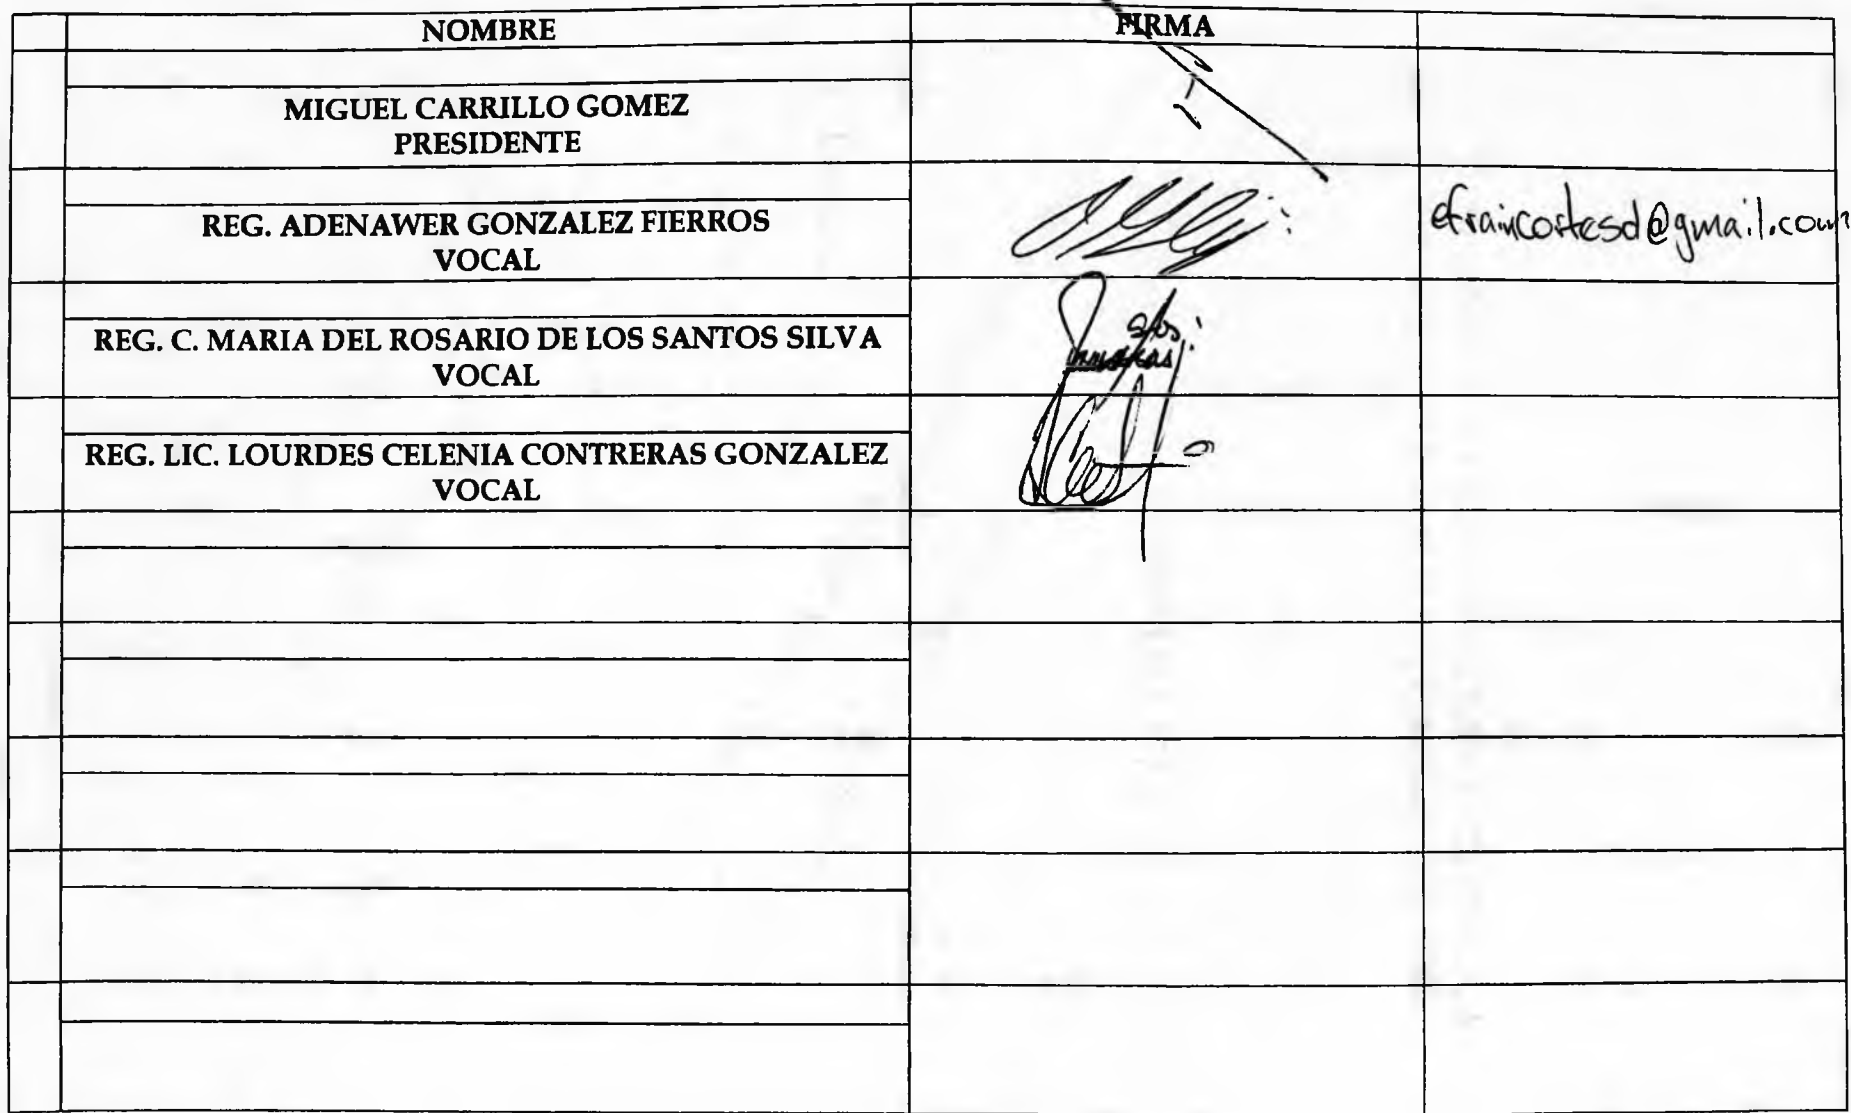 NOMBRE FIRMA
MIGUEL CARRILLO GOMEZ
PRESIDENTE
REG. ADENAWER GONZALEZ FIERROS
VOCAL
efraincortesd@gmail.com
REG. C. MARIA DEL ROSARIO DE LOS SANTOS SILVA
VOCAL
REG. LIC. LOURDES CELENIA CONTRERAS GONZALEZ
VOCAL